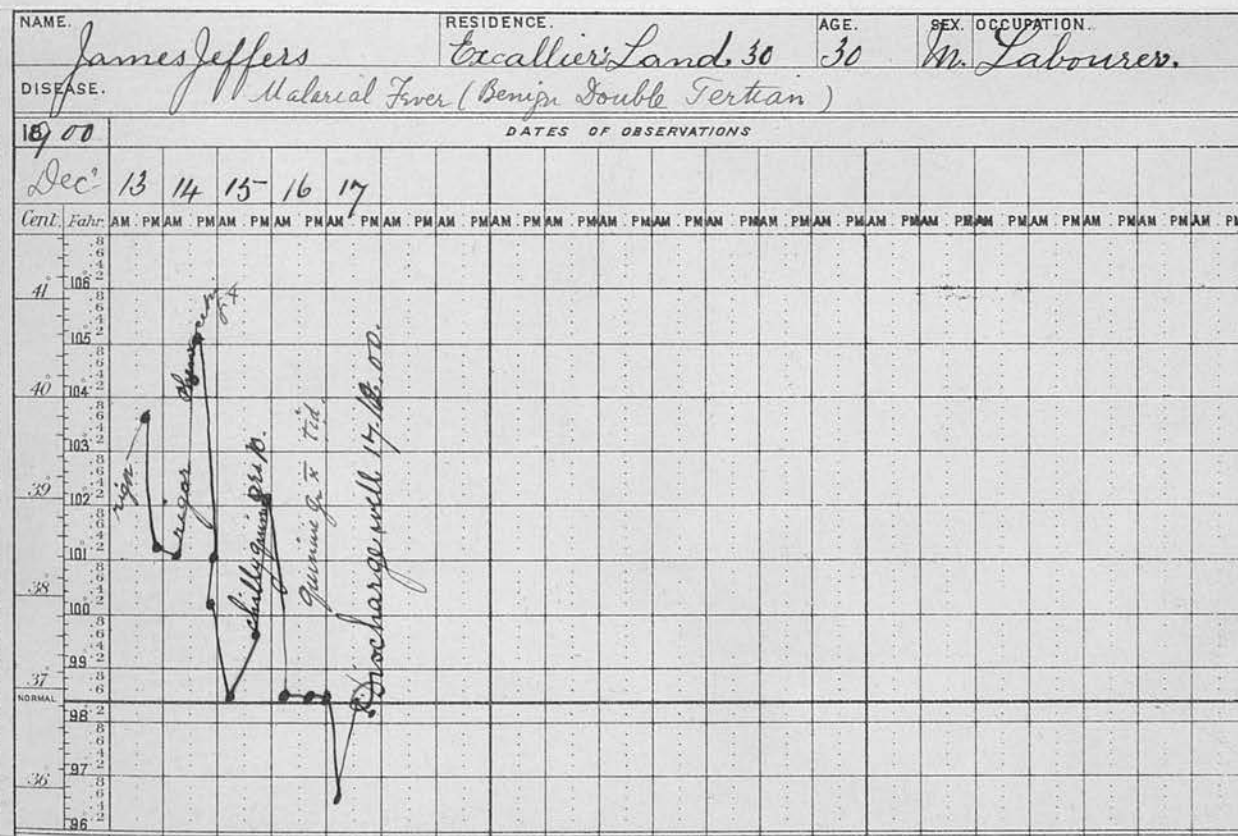 NAME. RESIDENCE. AGE. SEX. OCCUPATION.
James Jeffers Excallier's Land 30 30 M. Labourer.
DISEASE. Malarial Fever (Benign Double Tertian)
1900 DATES OF OBSERVATIONS
Dec. 13 14 15 16 17
Cent. Fahr. AM PM AM PM AM PM AM PM AM PM AM PM AM PM AM PM AM PM AM PM AM PM AM PM AM PM AM PM AM PM AM PM AM PM AM PM AM PM AM PM AM PM
41° 106°
105°
40° 104°
103°
39° 102°
101°
38° 100°
99°
37°
NORMAL
98°
36° 97°
96
rigor
rigor
chilly quinine gr. x.
quinine gr. x tid.
Discharge well 17.12.00.